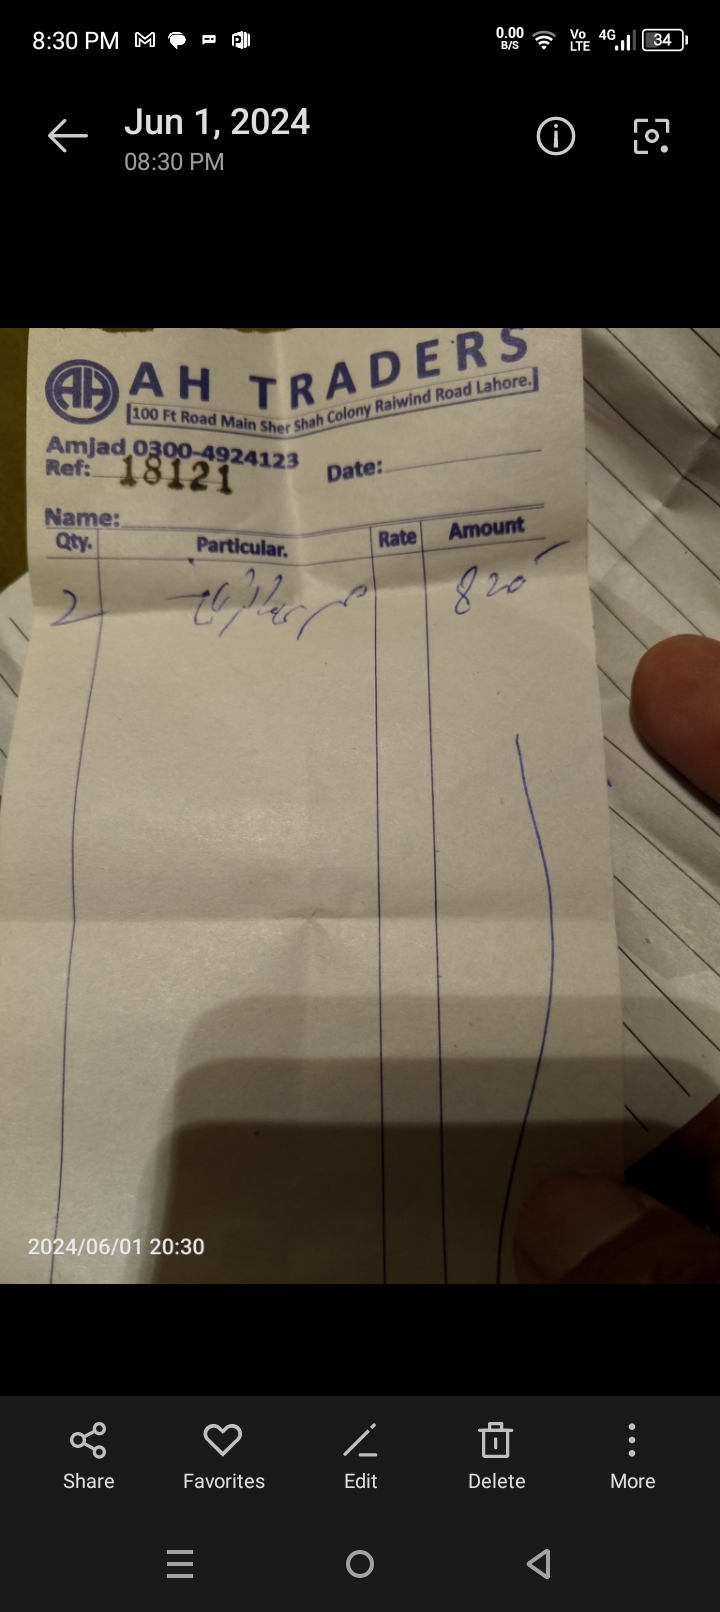 8:30 PM 0.00 B/S Vo LTE 4G 34
Jun 1, 2024
08:30 PM
AH AH TRADERS
100 Ft Road Main Sher Shah Colony Raiwind Road Lahore.
Amjad 0300-4924123
Ref: 18121 Date:
Name:
Qty. Particular. Rate Amount
2 820
2024/06/01 20:30
Share Favorites Edit Delete More